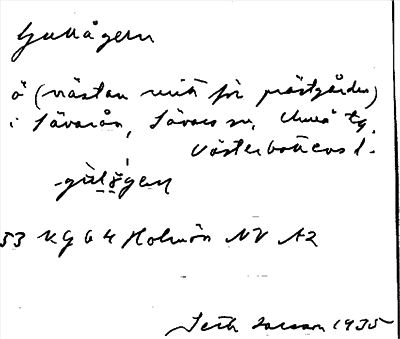 Gullågern
ö (nästan mitt för prästgården)
i Sävarån, Sävars sn, Umeå tg.
Västerbottens l.
53 KG 64 Holmön NV A2
Seth Larsson 1935